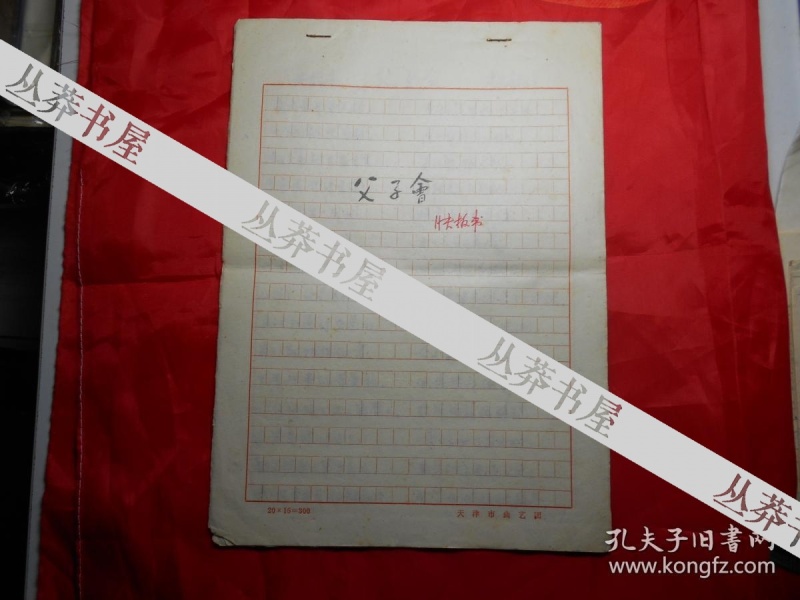 父子會
快板书
20×15=300
天津市曲艺团
丛莽书屋
丛莽书屋
丛莽书屋
丛莽书屋
孔夫子旧書网
www.kongfz.com